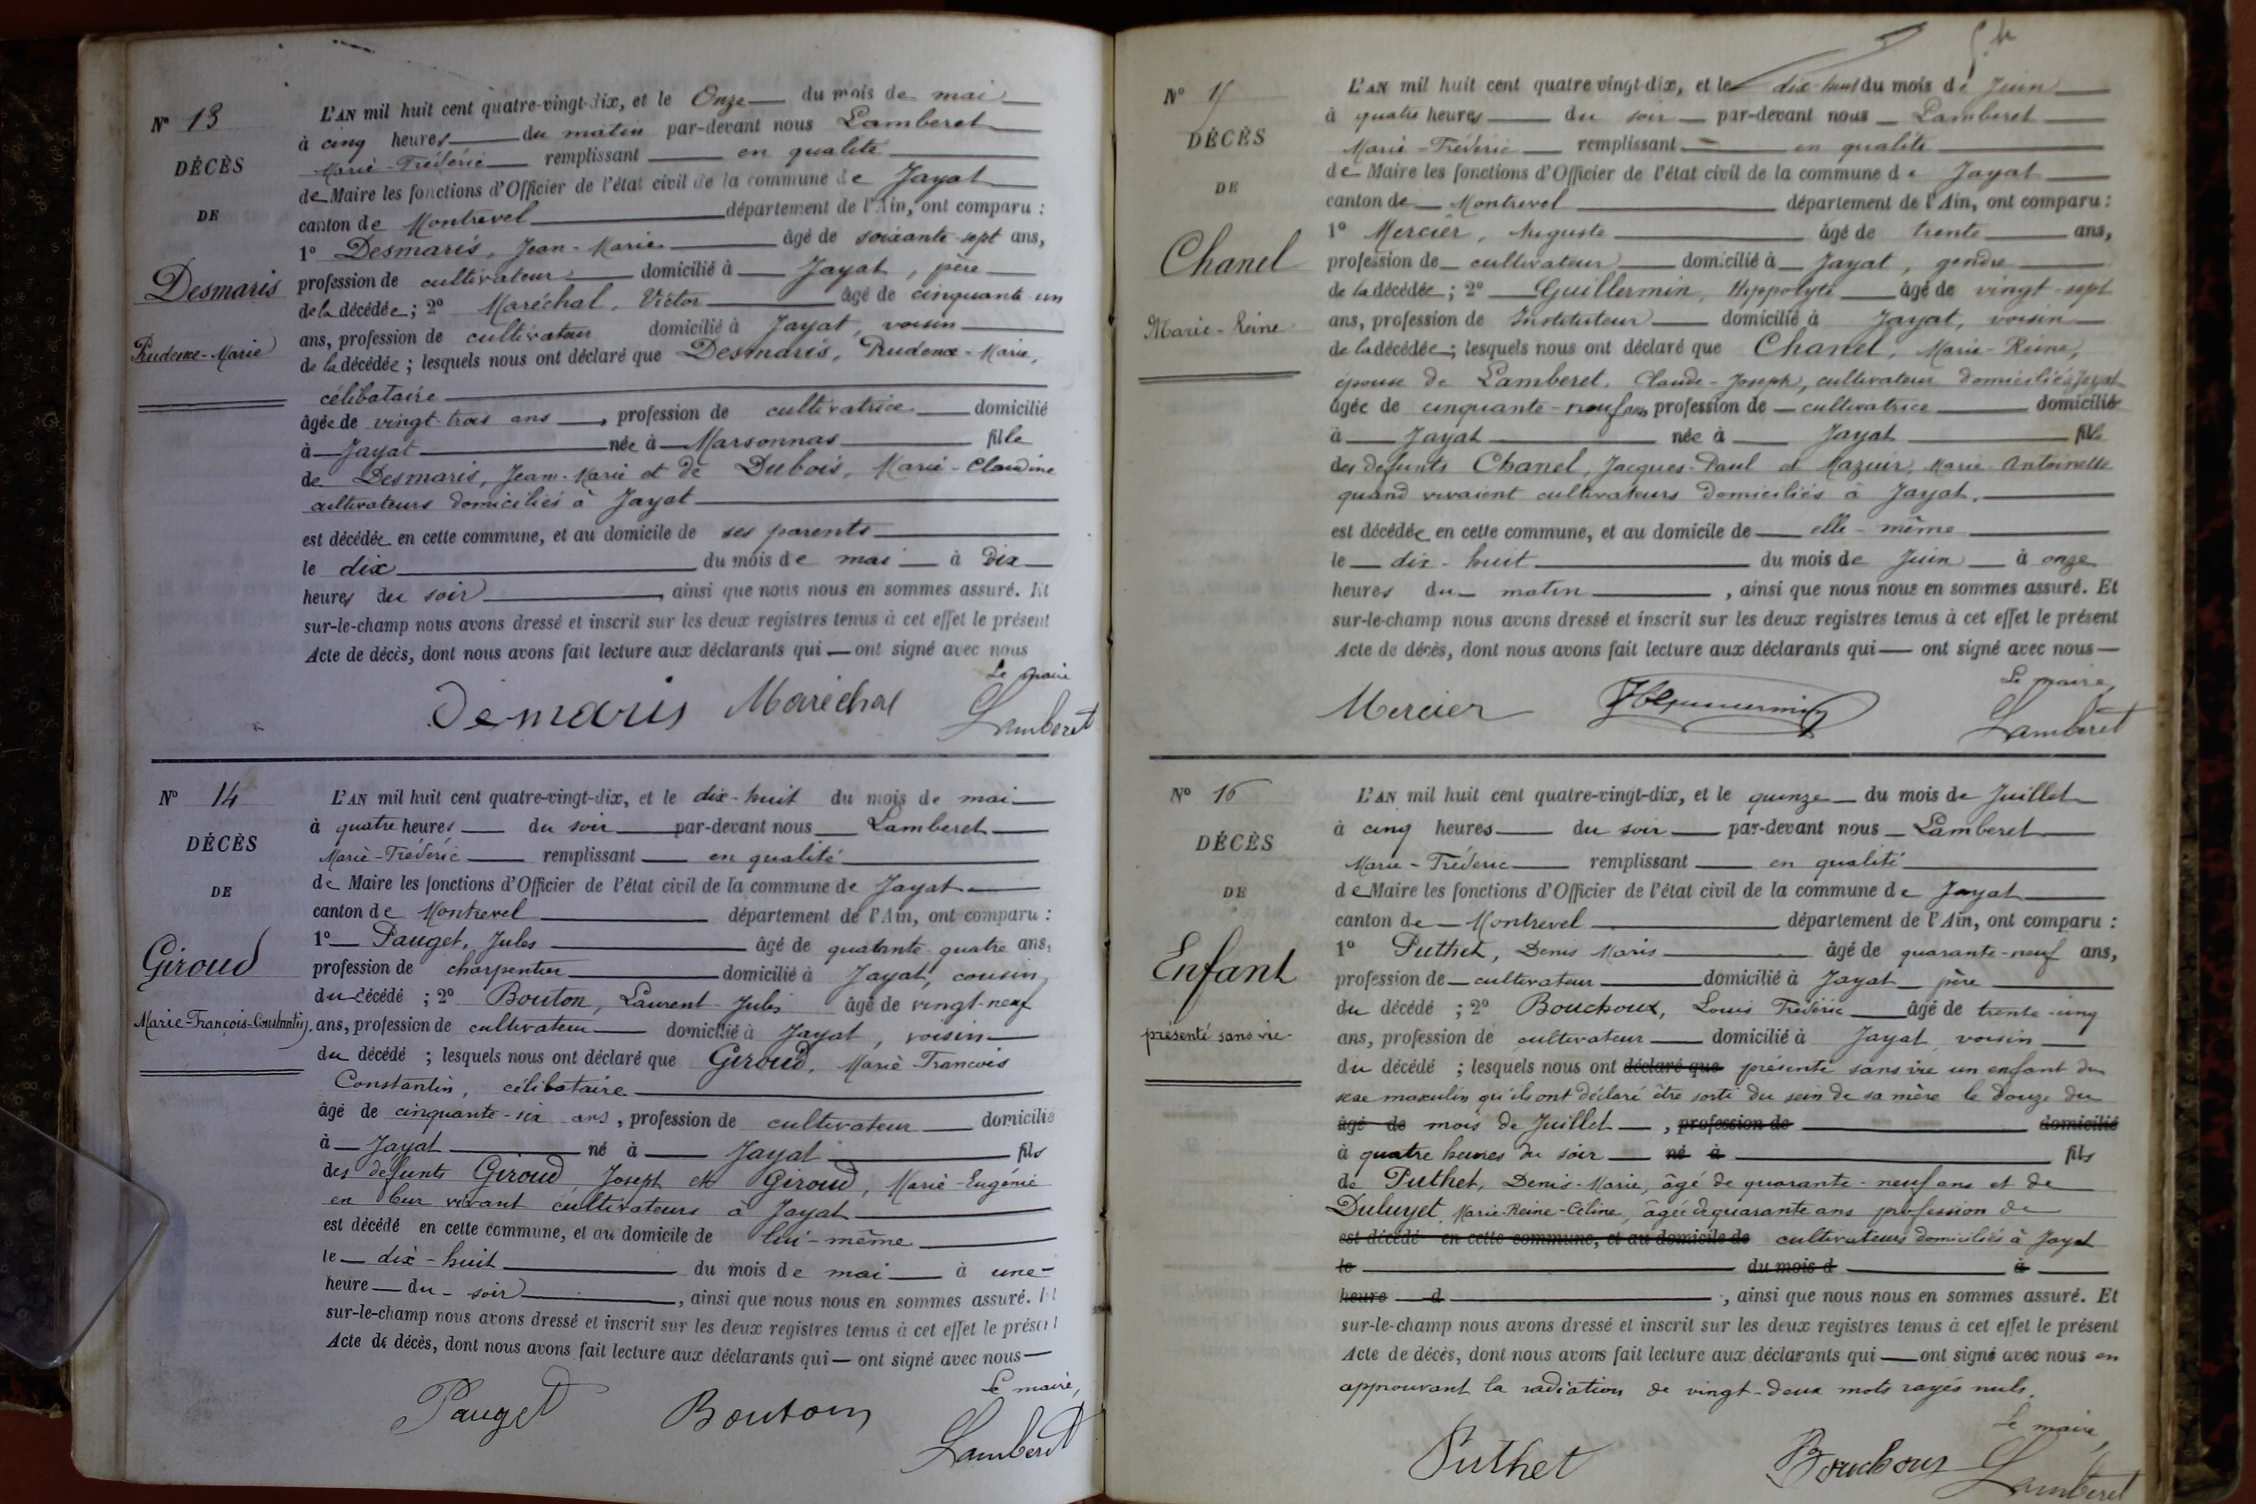 Nº 13
DÉCÈS
DE
Desmaris
Prudence-Marie
L'AN mil huit cent quatre-vingt-dix, et le Onze du mois de mai
à cinq heures du matin par-devant nous Lamberet
Marie-Frédéric remplissant en qualité
de Maire les fonctions d'Officier de l'état civil de la commune de Jayat
canton de Montrevel département de l'Ain, ont comparu :
1º Desmaris, Jean-Marie âgé de soixante-sept ans,
profession de cultivateur domicilié à Jayat, père
de la décédée ; 2º Maréchal, Victor âgé de cinquante-un
ans, profession de cultivateur domicilié à Jayat, voisin
de la décédée ; lesquels nous ont déclaré que Desmaris, Prudence-Marie,
célibataire
âgée de vingt-trois ans, profession de cultivatrice domicilié
à Jayat née à Marsonnas fille
de Desmaris, Jean-Marie et de Dubois, Marie-Claudine
cultivateurs domiciliés à Jayat
est décédée en cette commune, et au domicile de ses parents
le dix du mois de mai à dix
heures du soir, ainsi que nous nous en sommes assuré. Et
sur-le-champ nous avons dressé et inscrit sur les deux registres tenus à cet effet le présent
Acte de décès, dont nous avons fait lecture aux déclarants qui ont signé avec nous
Le maire
Demaris Maréchal Lamberet
Nº 14
DÉCÈS
DE
Giroud
Marie-François-Constantin
L'AN mil huit cent quatre-vingt-dix, et le dix-huit du mois de mai
à quatre heures du soir par-devant nous Lamberet
Marie-Fréderic remplissant en qualité
de Maire les fonctions d'Officier de l'état civil de la commune de Jayat
canton de Montrevel département de l'Ain, ont comparu :
1º Pauget, Jules âgé de quarante-quatre ans,
profession de charpentier domicilié à Jayat, cousin
du décédé ; 2º Bouton, Laurent-Jules âgé de vingt-neuf
ans, profession de cultivateur domicilié à Jayat, voisin
du décédé ; lesquels nous ont déclaré que Giroud, Marie François
Constantin, célibataire
âgé de cinquante-six ans, profession de cultivateur domicilié
à Jayat né à Jayat fils
des défunts Giroud, Joseph et Giroud, Marie-Eugénie
en leur vivant cultivateurs à Jayat
est décédé en cette commune, et au domicile de lui-même
le dix-huit du mois de mai à une
heure du soir, ainsi que nous nous en sommes assuré. Et
sur-le-champ nous avons dressé et inscrit sur les deux registres tenus à cet effet le présent
Acte de décès, dont nous avons fait lecture aux déclarants qui ont signé avec nous
Le maire,
Pauget Bouton Lamberet
Nº 15
DÉCÈS
DE
Chanel
Marie-Reine
L'AN mil huit cent quatre-vingt-dix, et le dix-huit du mois de Juin
à quatre heures du soir par-devant nous Lamberet
Marie-Fréderic remplissant en qualité
de Maire les fonctions d'Officier de l'état civil de la commune de Jayat
canton de Montrevel département de l'Ain, ont comparu :
1º Mercier, Auguste âgé de trente ans,
profession de cultivateur domicilié à Jayat, gendre
de la décédée ; 2º Guillermin, Hippolyte âgé de vingt-sept
ans, profession de Instituteur domicilié à Jayat, voisin
de la décédée ; lesquels nous ont déclaré que Chanel, Marie-Reine,
épouse de Lamberet, Claude-Joseph, cultivateur domicilié à Jayat
âgée de cinquante-neuf ans, profession de cultivatrice domicilié
à Jayat née à Jayat fille
des défunts Chanel, Jacques-Paul et Mazuir, Marie Antoinette
quand vivaient cultivateurs domiciliés à Jayat.
est décédée en cette commune, et au domicile de elle-même
le dix-huit du mois de Juin à onze
heures du matin, ainsi que nous nous en sommes assuré. Et
sur-le-champ nous avons dressé et inscrit sur les deux registres tenus à cet effet le présent
Acte de décès, dont nous avons fait lecture aux déclarants qui ont signé avec nous
Le maire,
Mercier Lamberet
Nº 16
DÉCÈS
DE
Enfant
présenté sans vie
L'AN mil huit cent quatre-vingt-dix, et le quinze du mois de Juillet
à cinq heures du soir par-devant nous Lamberet
Marie-Fréderic remplissant en qualité
de Maire les fonctions d'Officier de l'état civil de la commune de Jayat
canton de Montrevel département de l'Ain, ont comparu :
1º Puthet, Denis Marie âgé de quarante-neuf ans,
profession de cultivateur domicilié à Jayat père
du décédé ; 2º Bouchoux, Louis Fréderic âgé de trente-cinq
ans, profession de cultivateur domicilié à Jayat voisin
du décédé ; lesquels nous ont déclaré que présenté sans vie un enfant du
sexe masculin qu'ils ont déclaré être sorti du sein de sa mère le douze du
âgé de mois de Juillet, profession de domicilié
à quatre heures du soir né à fils
de Puthet, Denis-Marie, âgé de quarante-neuf ans et de
Duluyet, Marie-Reine-Céline, âgée de quarante ans profession de
est décédé en cette commune, et au domicile de cultivateurs domiciliés à Jayat
le du mois d à
heure d, ainsi que nous nous en sommes assuré. Et
sur-le-champ nous avons dressé et inscrit sur les deux registres tenus à cet effet le présent
Acte de décès, dont nous avons fait lecture aux déclarants qui ont signé avec nous en
approuvant la radiation de vingt-deux mots rayés nuls.
Le maire,
Puthet Bouchoux Lamberet